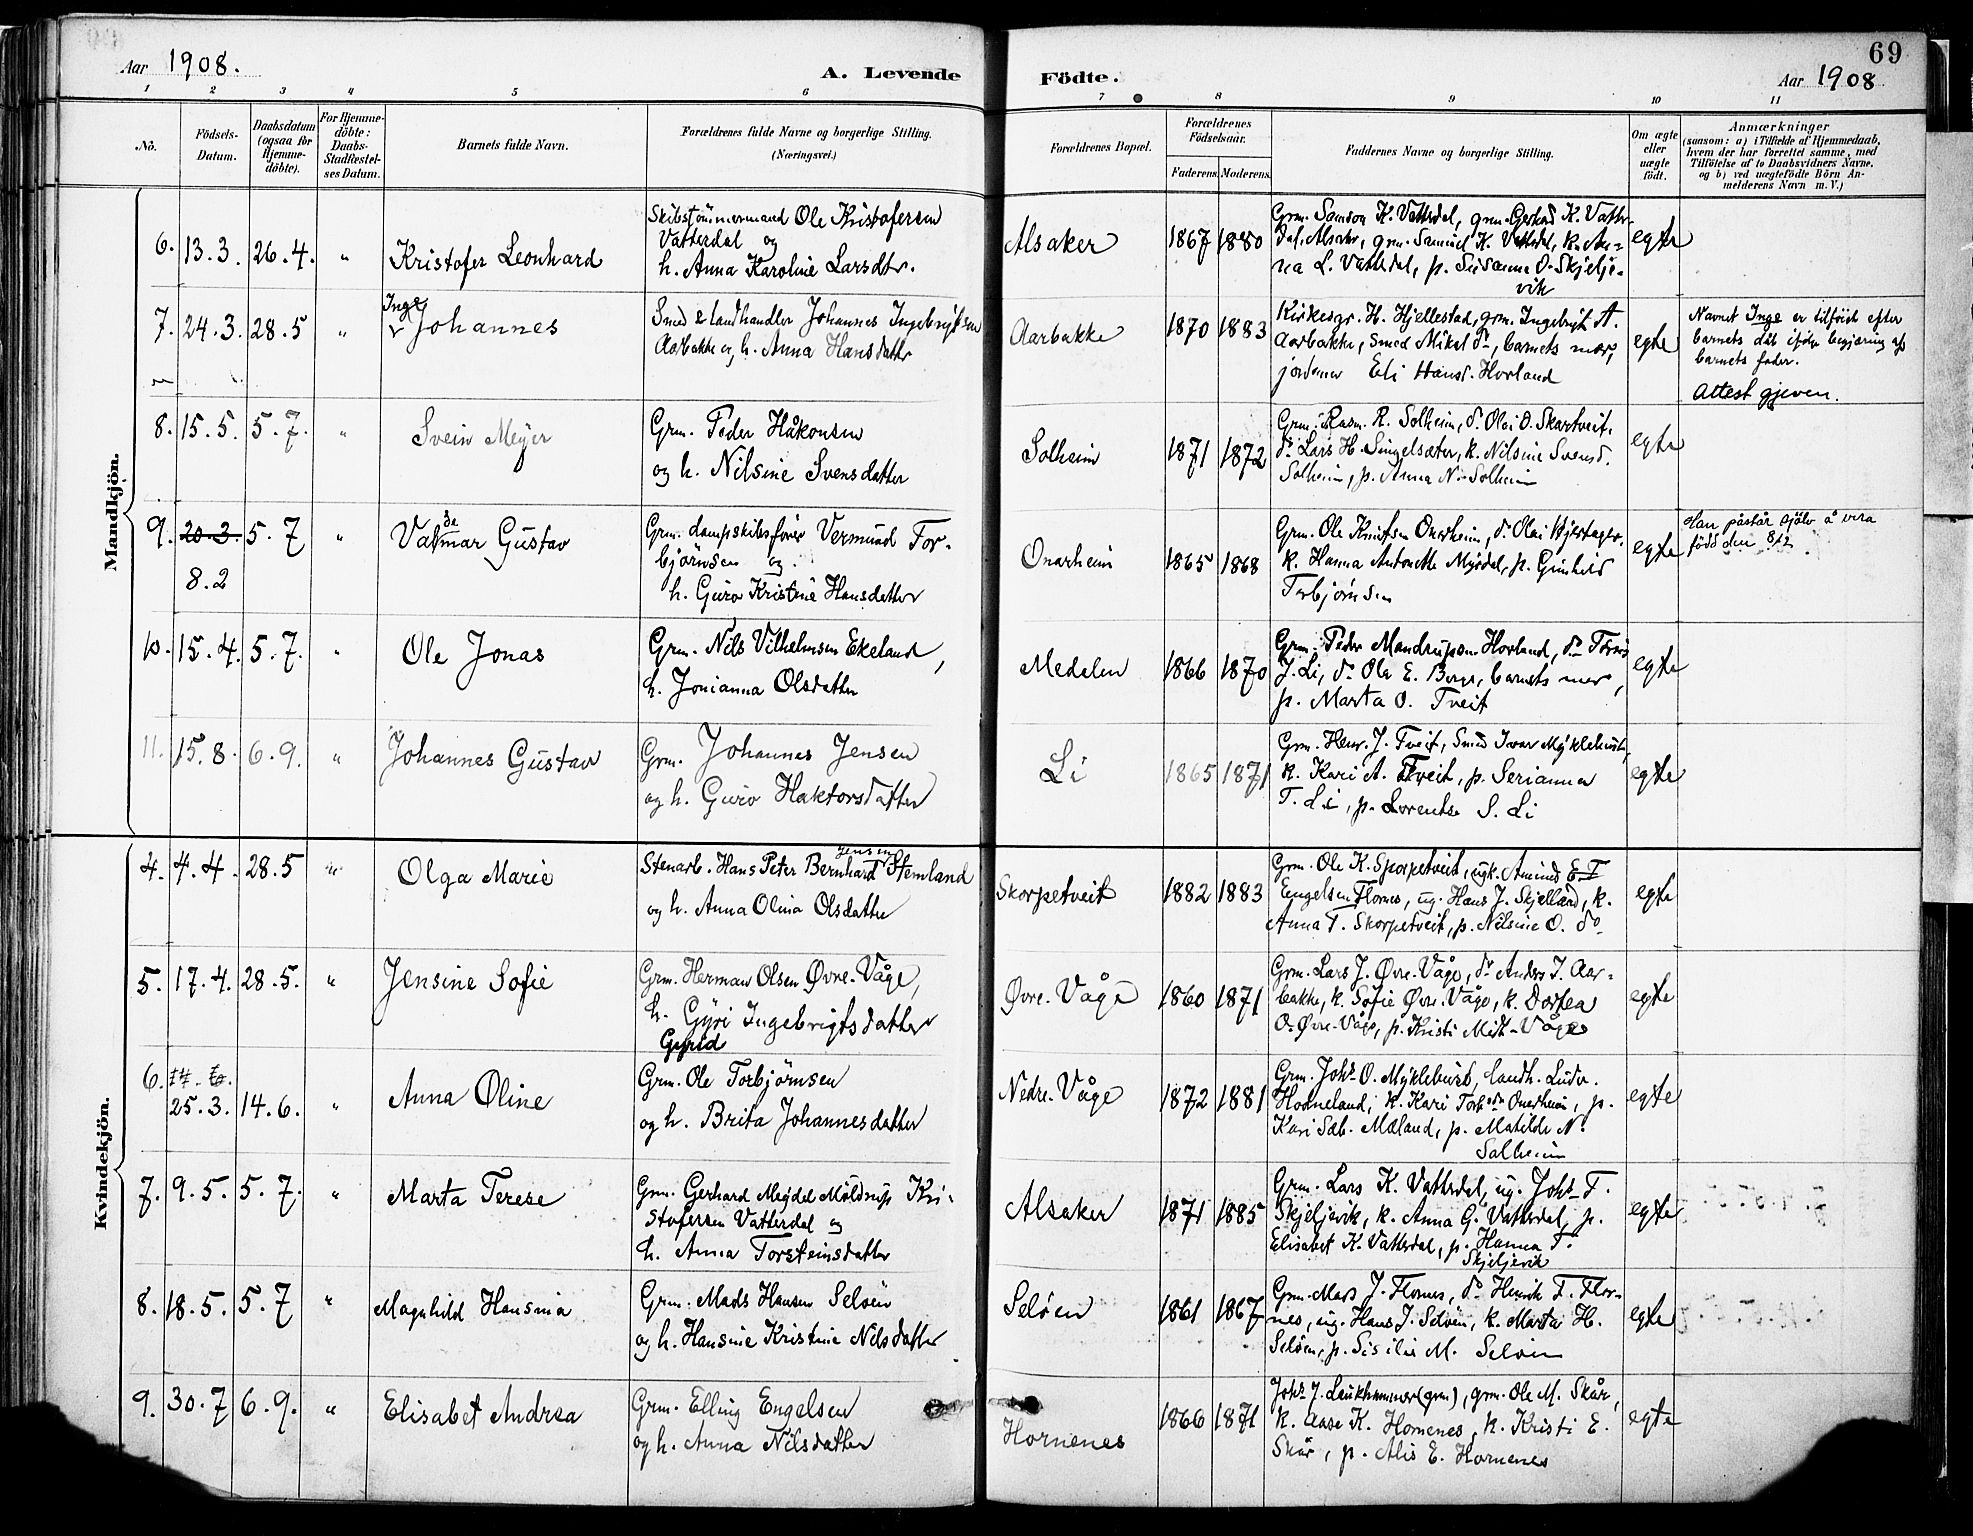 69
Aar 1908.
A. Levende
Födte.
Aar 1908
1 2 3 4 5 6 7 8 9 10 11
No.
Födsels-
Datum.
Daabsdatum
(ogsaa for
Hjemme-
döbte).
For Hjemme-
döbte:
Daabs-
Stadfæstel-
ses Datum.
Barnets fulde Navn.
Forældrenes fulde Navne og borgerlige Stilling.
(Næringsvei.)
Forældrenes Bopæl.
Forældrenes
Födselsaar.
Faderens. Moderens.
Faddernes Navne og borgerlige Stilling.
Om ægte
eller
uægte
födt.
Anmærkninger
(saasom: a) i Tilfælde af Hjemmedaab,
hvem der har forrettet samme, med
Tilföielse af to Daabsvidners Navne,
og b) ved uægtefödte Börn An-
melderens Navn m. V.)
Mandkjön.
6. 13.3. 26.4. " Kristofer Leonhard
Skibstömmermand Ole Kristofersen
Vatterdal og
h. Anna Karoline Larsdtr.
Alsaker 1867 1880
Grm. Samson K. Vatterdal, grm. Gerhard K. Vatter-
dal, Alsaker, grm. Samuel K. Vatterdal, k. An-
na L. Vatterdal, p. Susanna O. Skjelje-
vik
egte
7. 24.3. 28.5 " Inge
Johannes
Smed & landhandler Johannes Ingebrigtsen
Aarbakke og h. Anna Hansdatter
Aarbakke 1870 1883
Kirkesgr. H. Hjellestad, grm. Ingebrigt A.
Aarbakke, smed Mikal do, barnets mor,
jordemor Eli Hansd. Hovland
egte
Navnet Inge er tilföiet efter
barnets dåb ifölge begjæring af
barnets fader.
Attest gjeven.
8. 15.5. 5.7. " Svein Meyer
Grm. Peder Håkonsen
og h. Nilsine Svensdatter
Solheim 1871 1872
Grm. Rasm. R. Solheim, do Olai O. Skartveit,
do Lars H. Singelsæter, k. Nilsine Svensd.
Solheim, p. Anna N. Solheim
egte
9. 20.3. 5.7 " Valdemar Gustav
8.2
Grm. dampskibsförer Vermund Tor-
björnsen og
h. Guro Kristine Hansdatter
Onarheim 1865 1868
Grm. Ole Knutsen Onarheim, do Olai Hjertager,
k. Hanna Antonette Myrdal, p. Gunhild
Torbjörnsen
egte
Han påstår sjölv å vera
född den 8/2
10. 15.4. 5.7. " Ole Jonas
Grm. Nils Vilhelmsen Ekeland,
h. Jonianna Olsdatter
Medelen 1866 1870
Grm. Peder Mandrupsen Hovland, do Tornes
J. Li, do Ole E. Berge, barnets mor,
p. Marta O. Tveit
egte
11. 15.8. 6.9. " Johannes Gustav
Grm. Johannes Jensen
og h. Guro Haktorsdatter
Li 1865 1871
Grm. Henr. J. Tveit, Smed Ivar Myklebust,
k. Kari A. Tveit, p. Serianna
T. Li, p. Lorentse S. Li
egte
Kvindekjön.
4. 4.4. 28.5 " Olga Marie
Jensen
Stenarb. Hans Peter Bernhard Stemland
og h. Anna Olina Olsdatter
Skorpetveit 1882 1883
Grm. Ole K. Skorpetveit, ugk. Amund E. T
Engelsen Flornes, ug. Hans J. Skjelland, k.
Anna T. Skorpetveit, p. Nilsine O. do
egte
5. 17.4. 28.5. " Jensine Sofie
Grm. Herman Olsen Övre-Våge,
h. Gyri Ingebrigtsdatter
Gyrid
Övre-Våge 1860 1871
Grm. Lars J. Övre-Våge, do Anders I. Aar-
bakke, k. Sofie Övre-Våge, k. Dortea
O. Övre-Våge, p. Kristi Midt-Våge
egte
6. 25.3. 14.6. " Anna Oline
Grm. Ole Torbjörnsen
og h. Brita Johannesdatter
Nedre-Våge 1872 1881
Grm. Johs O. Myklebust, landh. Ludv.
Hodneland, k. Kari Torbsdr Onarheim, p.
Kari Sæb. Mæland, p. Matilde N.
Solheim
egte
7. 9.5. 5.7. " Marta Terese
Grm. Gerhard Meydel Möldrup Kri-
stofersen Vatterdal og
h. Anna Torsteinsdatter
Alsaker 1871 1885
Grm. Lars K. Vatterdal, ug. Johs T.
Skjeljevik, k. Anna G. Vatterdal, p.
Elisabet K. Vatterdal, p. Hanna T.
Skjeljevik
egte
8. 18.5. 5.7 " Magnhild Hansina
Grm. Mads Hansen Selöen
og h. Hansine Kristine Nilsdatter
Selöen 1861 1867
Grm. Mass J. Flornes, do Henrik F. Flor-
nes, ug. Hans J. Selöen, k. Marta H.
Selöen, p. Sisilie M. Selöen
egte
9. 30.7 6.9. " Elisabet Andrea
Grm. Elling Engelsen
og h. Anna Nilsdatter
Hornenes 1866 1871
Johs J. Laukhammer (grm), grm. Ole M. Skår,
k. Aase K. Hornenes, k. Kristi E.
Skår, p. Alis E. Hornenes
egte